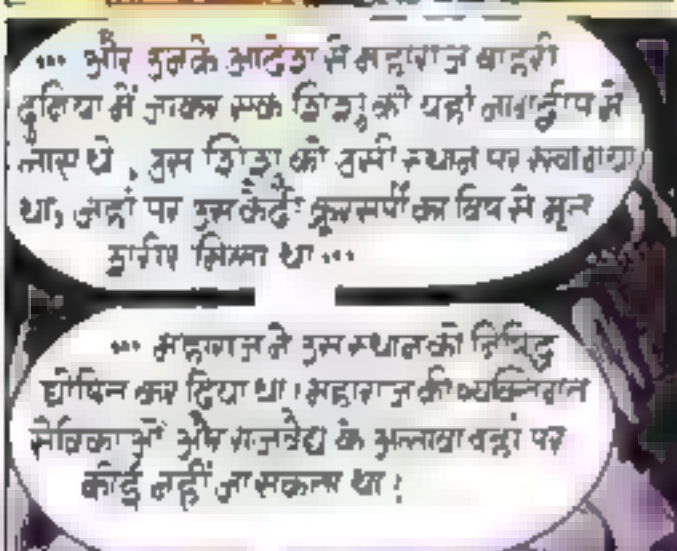 ... और उनके आदेश से महाराज बाहरी
दुनिया में जाकर एक शिशु को यहां नागद्वीप में
लाए थे, उस शिशु को उसी स्थान पर रखा गया
था, जहां पर उस कैदी क्रूरसर्पी का विष से मृत
शरीर मिला था...
... महाराज ने उस स्थान को निषिद्ध
घोषित कर दिया था। महाराज की व्यक्तिगत
सेविकाओं और राजवैद्य के अलावा वहां पर
कोई नहीं जा सकता था!